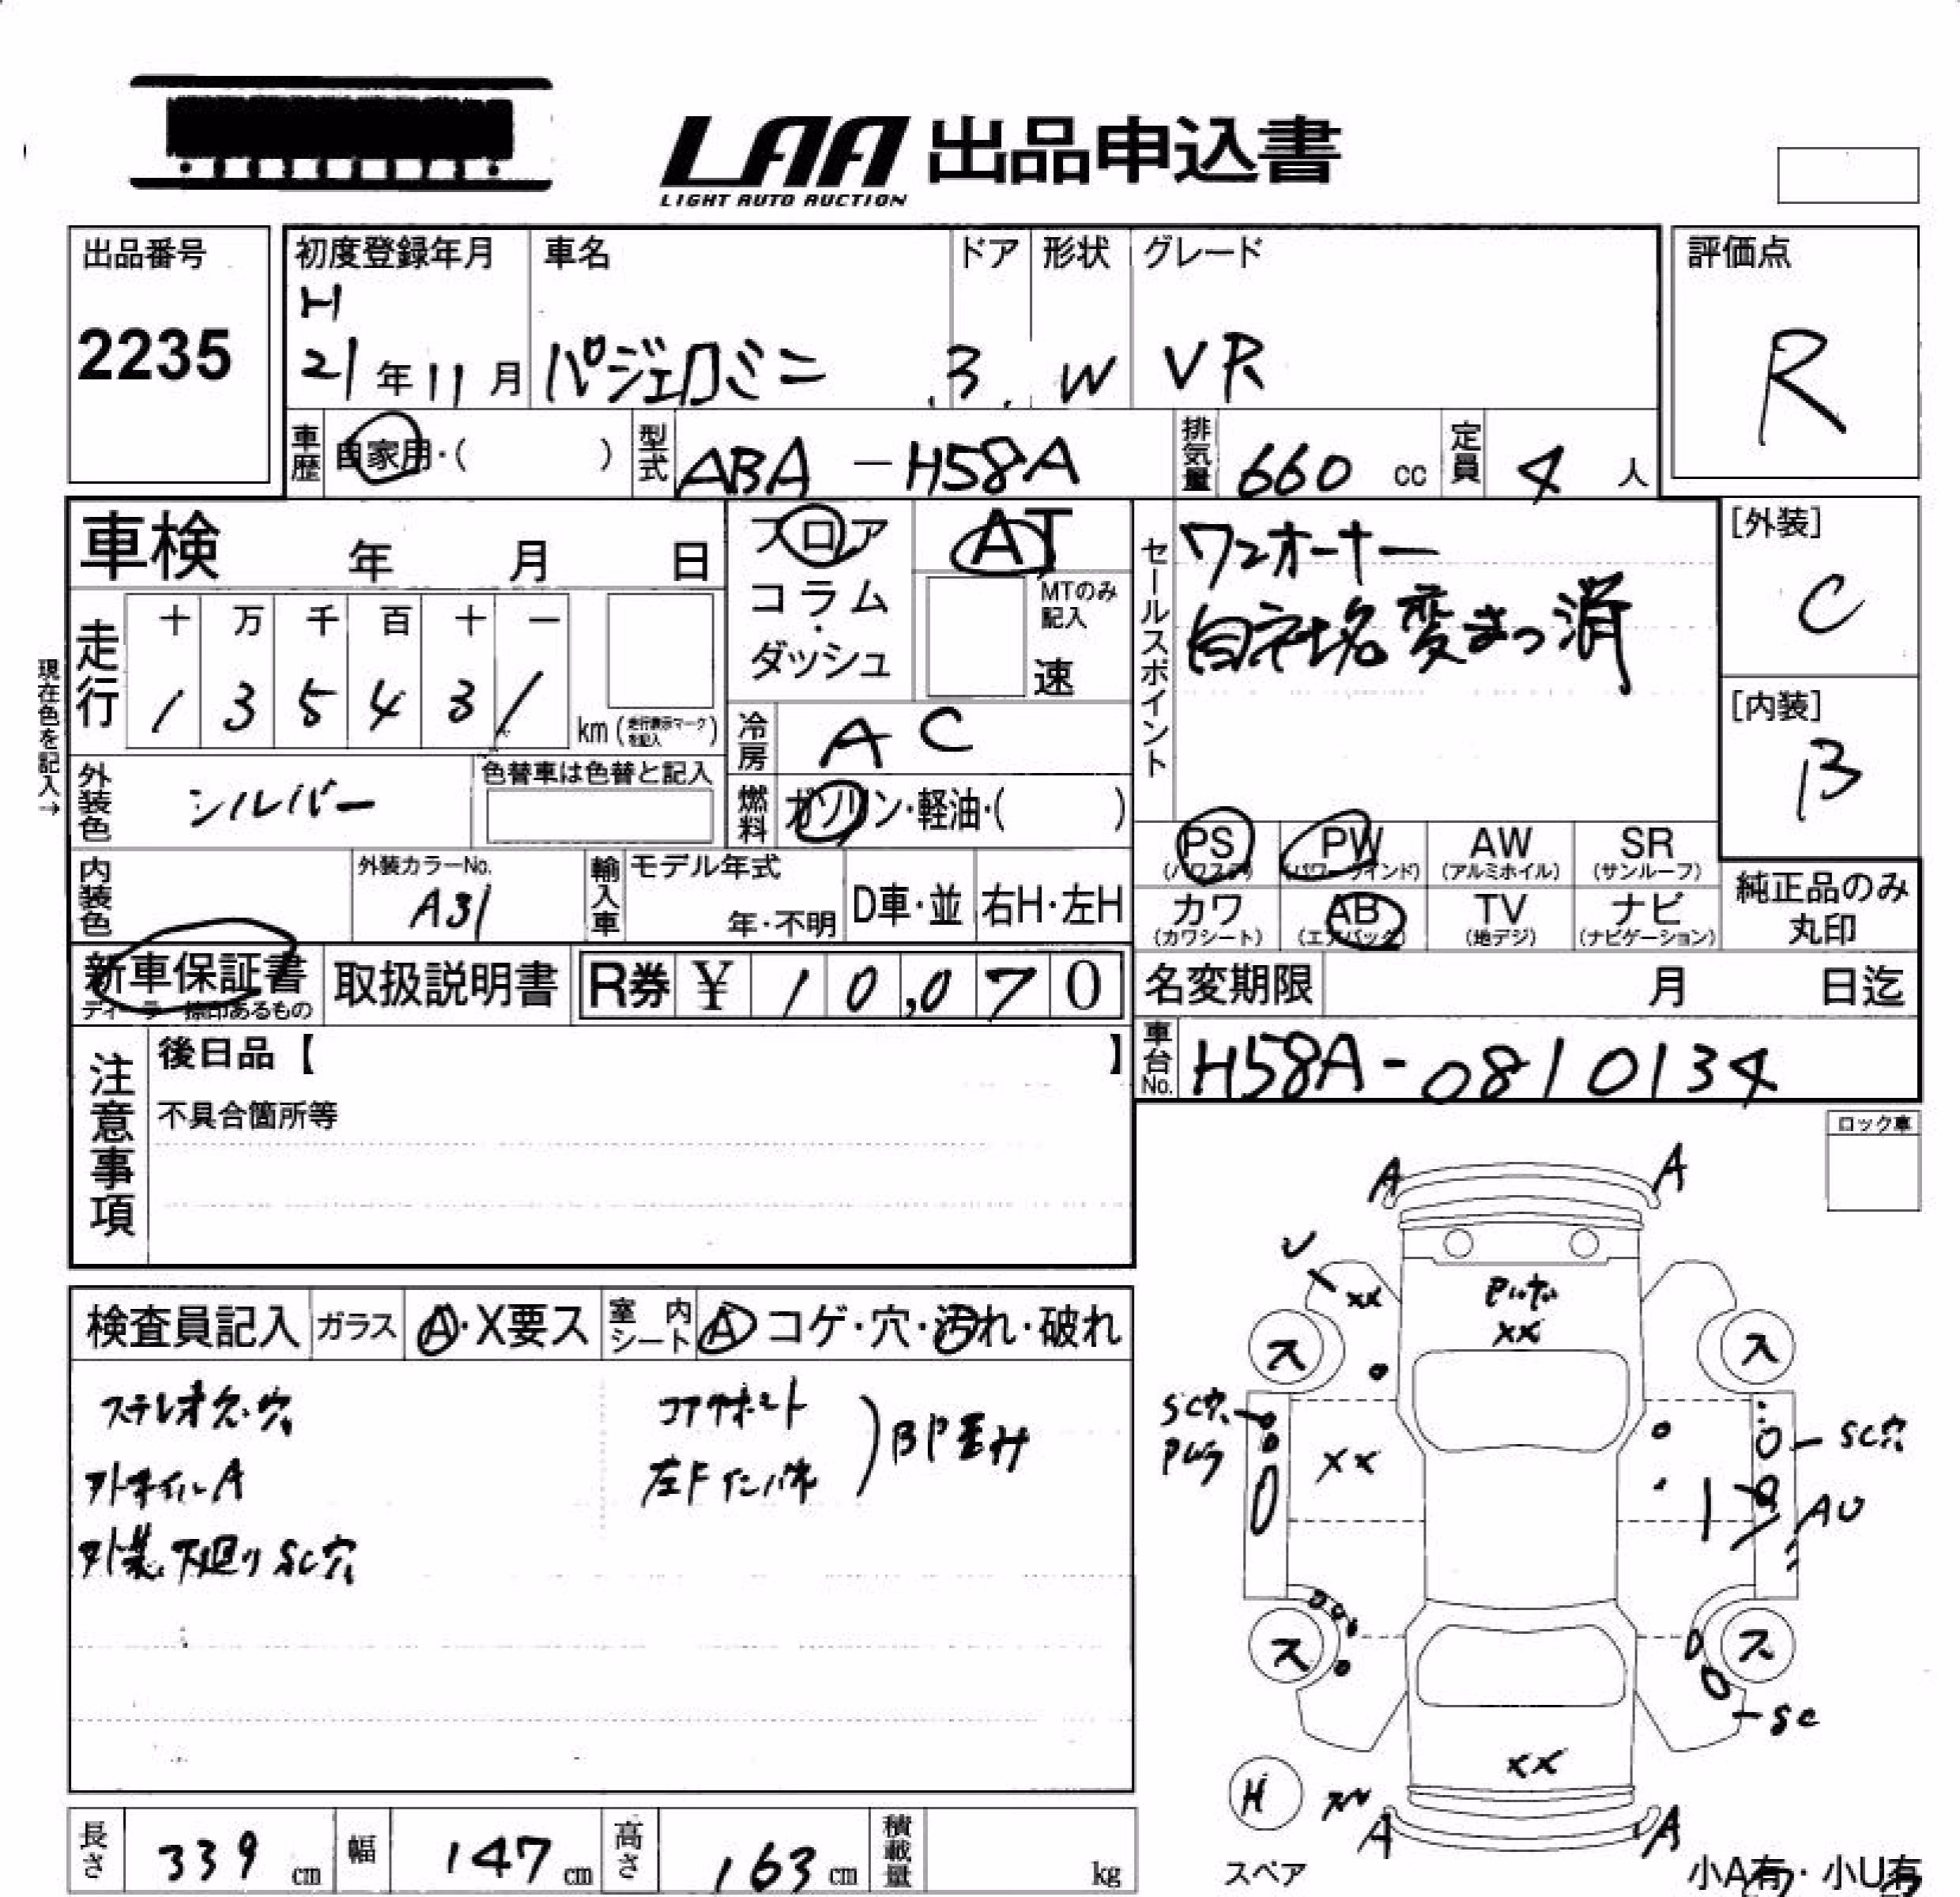 LAA 出品申込書
LIGHT AUTO AUCTION
出品番号 初度登録年月 車名 ドア 形状 グレード 評価点
2235 H 21年11月 パジェロミニ 3 W VR R
車歴 自家用・( ) 型式 ABA-H58A 排気量 660 cc 定員 4 人
車検 年 月 日
フロア
コラム・ダッシュ
AT
MTのみ記入
速
セールスポイント
ワンオーナー
自社名変まっ消
[外装]
C
[内装]
B
現在色を記入→
走行 十 万 千 百 十 一
1 3 5 4 3 1 km (走行表示マークを記入)
冷房 AC
外装色 シルバー 色替車は色替と記入
燃料 ガソリン・軽油・( )
PS (パワステ) PW (パワーウインド) AW (アルミホイル) SR (サンルーフ)
カワ (カワシート) AB (エアバッグ) TV (地デジ) ナビ (ナビゲーション)
純正品のみ丸印
内装色 外装カラーNo. A31 輸入車 モデル年式 年・不明 D車・並 右H・左H
新車保証書 取扱説明書 R券 ¥ 10,070
ディーラー捺印あるもの
名変期限 月 日迄
車台No. H58A-0810134
注意事項
後日品【 】
不具合箇所等
ロック車
検査員記入 ガラス A・X要ス 室内シート A コゲ・穴・汚れ・破れ
ステレオ欠・穴 コアサポート
外ホイルA 左Fインパネ BP歪み
外装、下廻りSC穴
A A
U
XX
XX
ス ス
SC穴
XX
SC穴
AU
ス ス
SC
XX
H
A A
スペア
小A有・小U有
長さ 339 cm 幅 147 cm 高さ 163 cm 積載量 kg